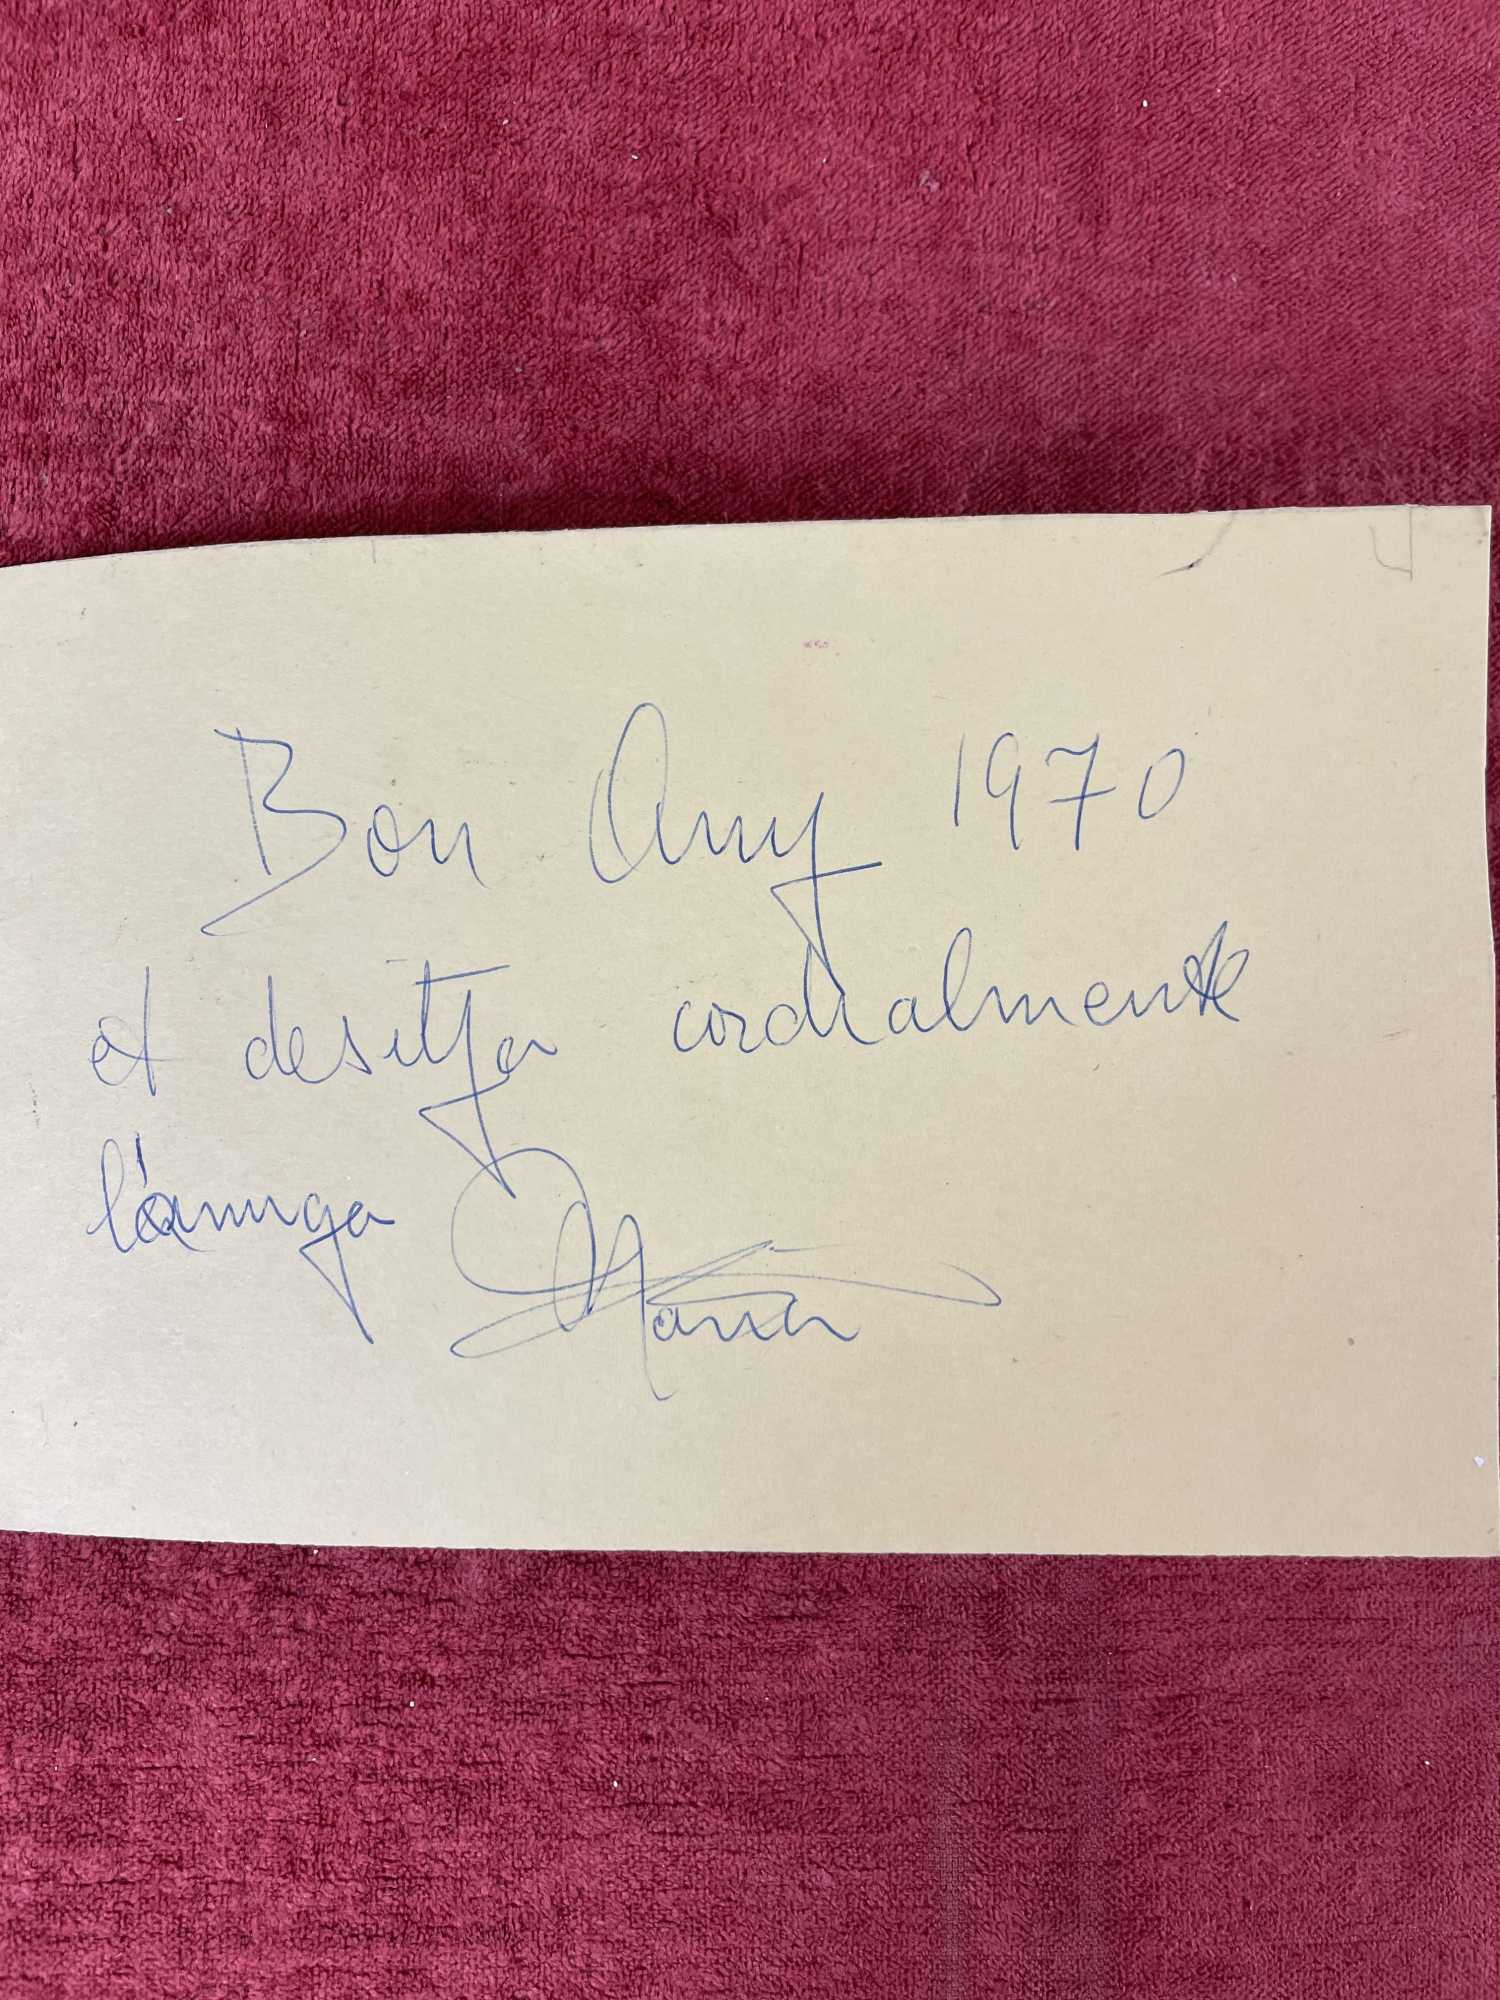 Bon Any 1970
et desitja cordialmente
l'amiga Maria